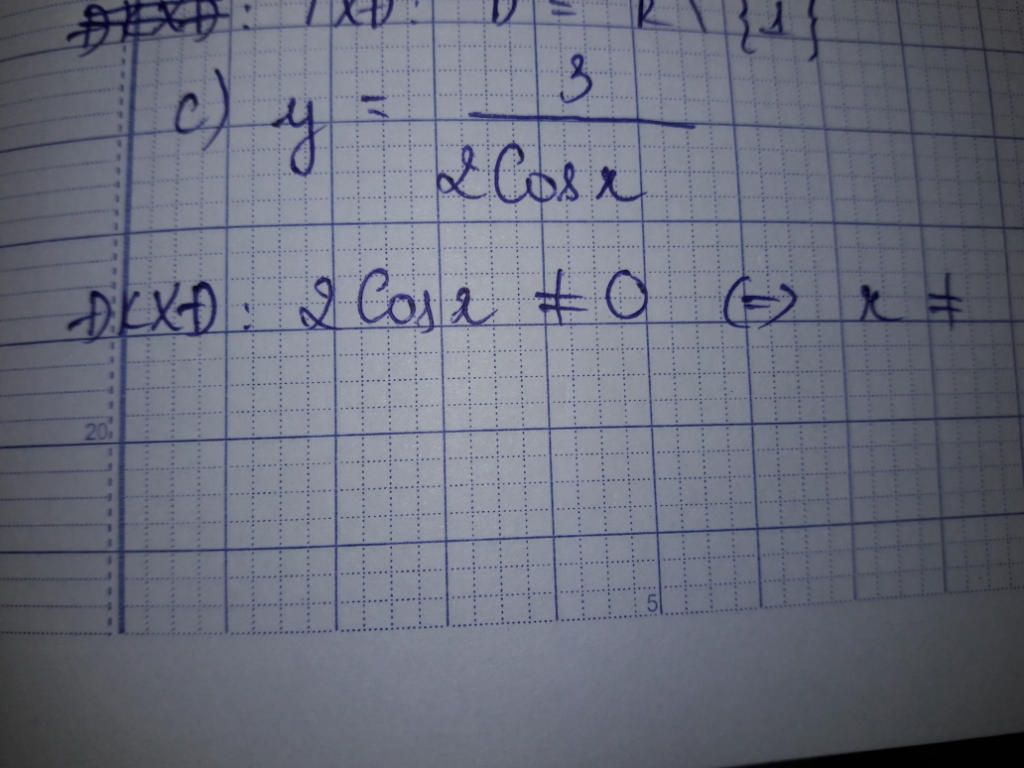 ĐKXĐ: TXĐ: D = R \ {1}
c) y = 3 / 2Cosx
ĐKXĐ: 2Cosx ≠ 0 (=) x ≠
20
5